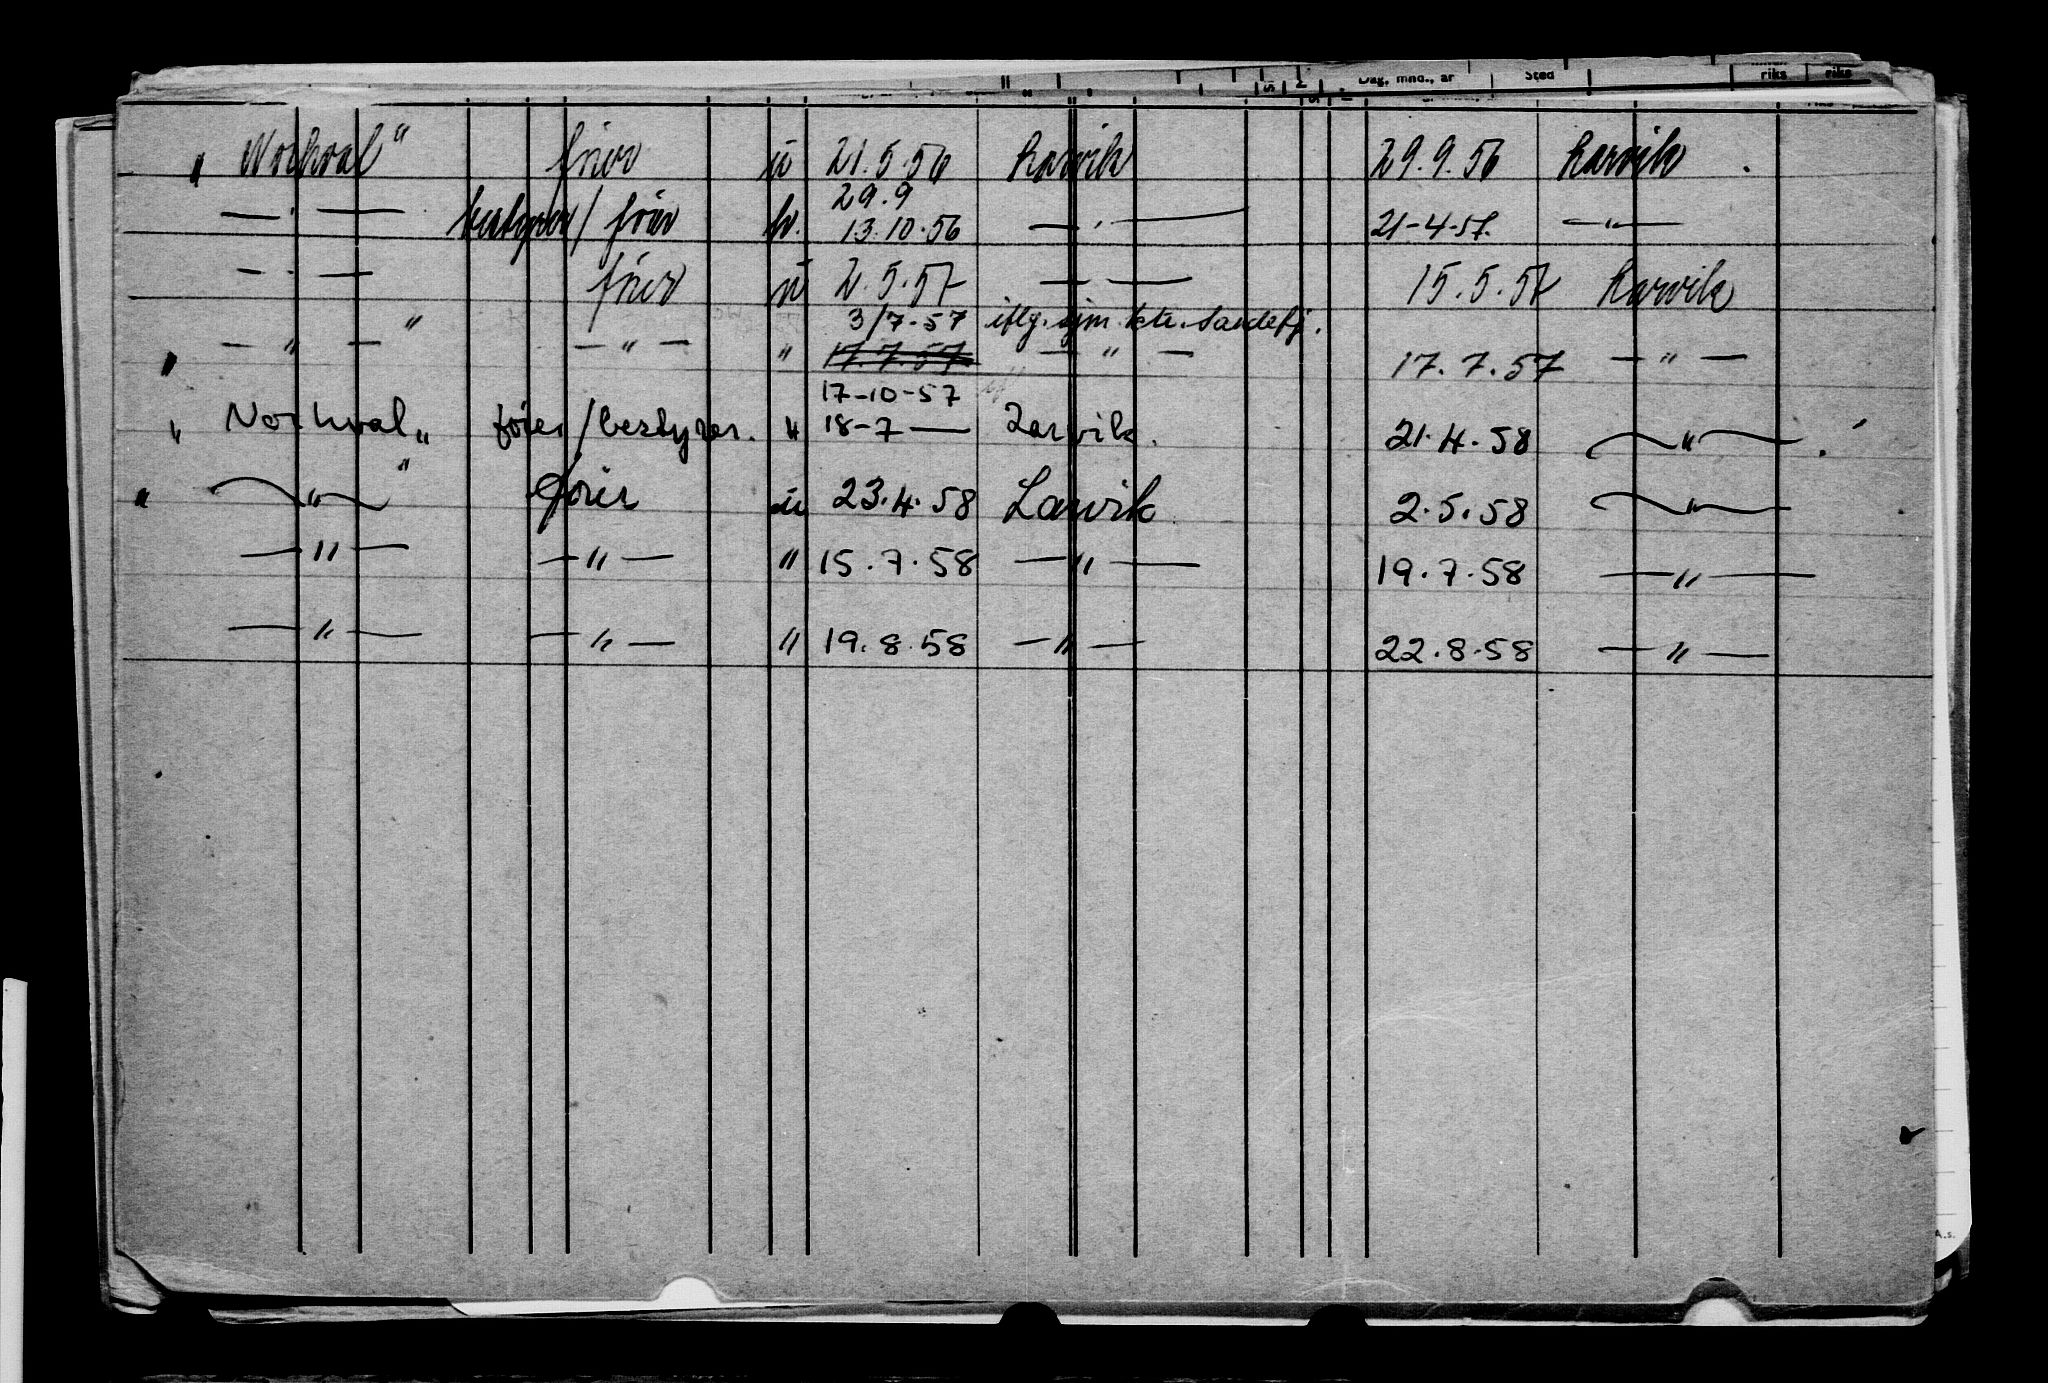 Dag, mnd., år Sted riks riks
„Norhval" fører u 21.5.56 Larvik 29.9.56 Larvik.
29.9
— " — bestyrer/fører h. 13.10.56 — " — 21-4-57. — " —
— " — fører u 2.5.57 — " — 15.5.57 Larvik
" 3/7-57 iflg. sjm.ktr. Sandefj.
„ — " — — " — " 17.7.57 — " — 17.7.57 — " —
17-10-57
„Norhval„ fører/bestyrer. " 18-7 — Larvik. 21.4.58 — " —
„ — " — " fører u 23.4.58 Larvik 2.5.58 — " —
— " — — " — " 15.7.58 — " — 19.7.58 — " —
— " — — " — " 19.8.58 — " — 22.8.58 — " —
A.s.